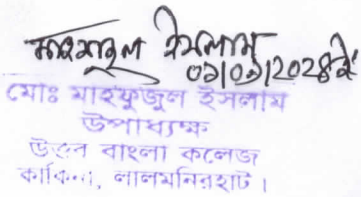 মাহফুজুল ইসলাম
০১/০১/২০২৪ইং
মোঃ মাহফুজুল ইসলাম
উপাধ্যক্ষ
উত্তর বাংলা কলেজ
কাকিনা, লালমনিরহাট।